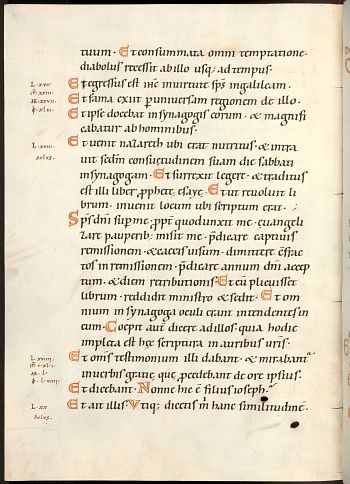 tuum. Et consummata omni temptatione.
diabolus recessit ab illo usq; ad tempus.
Et egressus est ihc in uirtute sps in galileam.
Et fama exiit p uniuersam regionem de illo.
Et ipse docebat in synagogis eorum. & magnifi
cabatur ab hominibus.
Et uenit nazareth ubi erat nutritus. & intra
uit scdm consuetudinem suam die sabbati
in synagogam. Et surrexit legere. & traditus
est illi liber pphete esaye. Et ut reuoluit li
brum. inuenit locum ubi scriptum erat.
Sps dni sup me. ppt quod unxit me. euangeli
zare pauperib; misit me. pdicare captiuis
remissionem. & cecis uisum. dimittere cfrac
tos in remissionem. pdicare annum dni accep
tum. & diem retributionis. Et cu plicuisset
librum. reddidit ministro & sedit. Et om
nium in synagoga oculi erant intendentes in
eum. Coepit aut dicere ad illos. quia hodie
impleta est hec scriptura in auribus uris.
Et oms testimonium illi dabant. & mirabant
in uerbis gratie. que pcedebant de ore ipsius.
Et dicebant. Nonne hic e filius ioseph.
Et ait illis. Utiq; dicetis m hanc similitudine.
L. XVII
L. XVIII.
solus.
L. XX
solus.